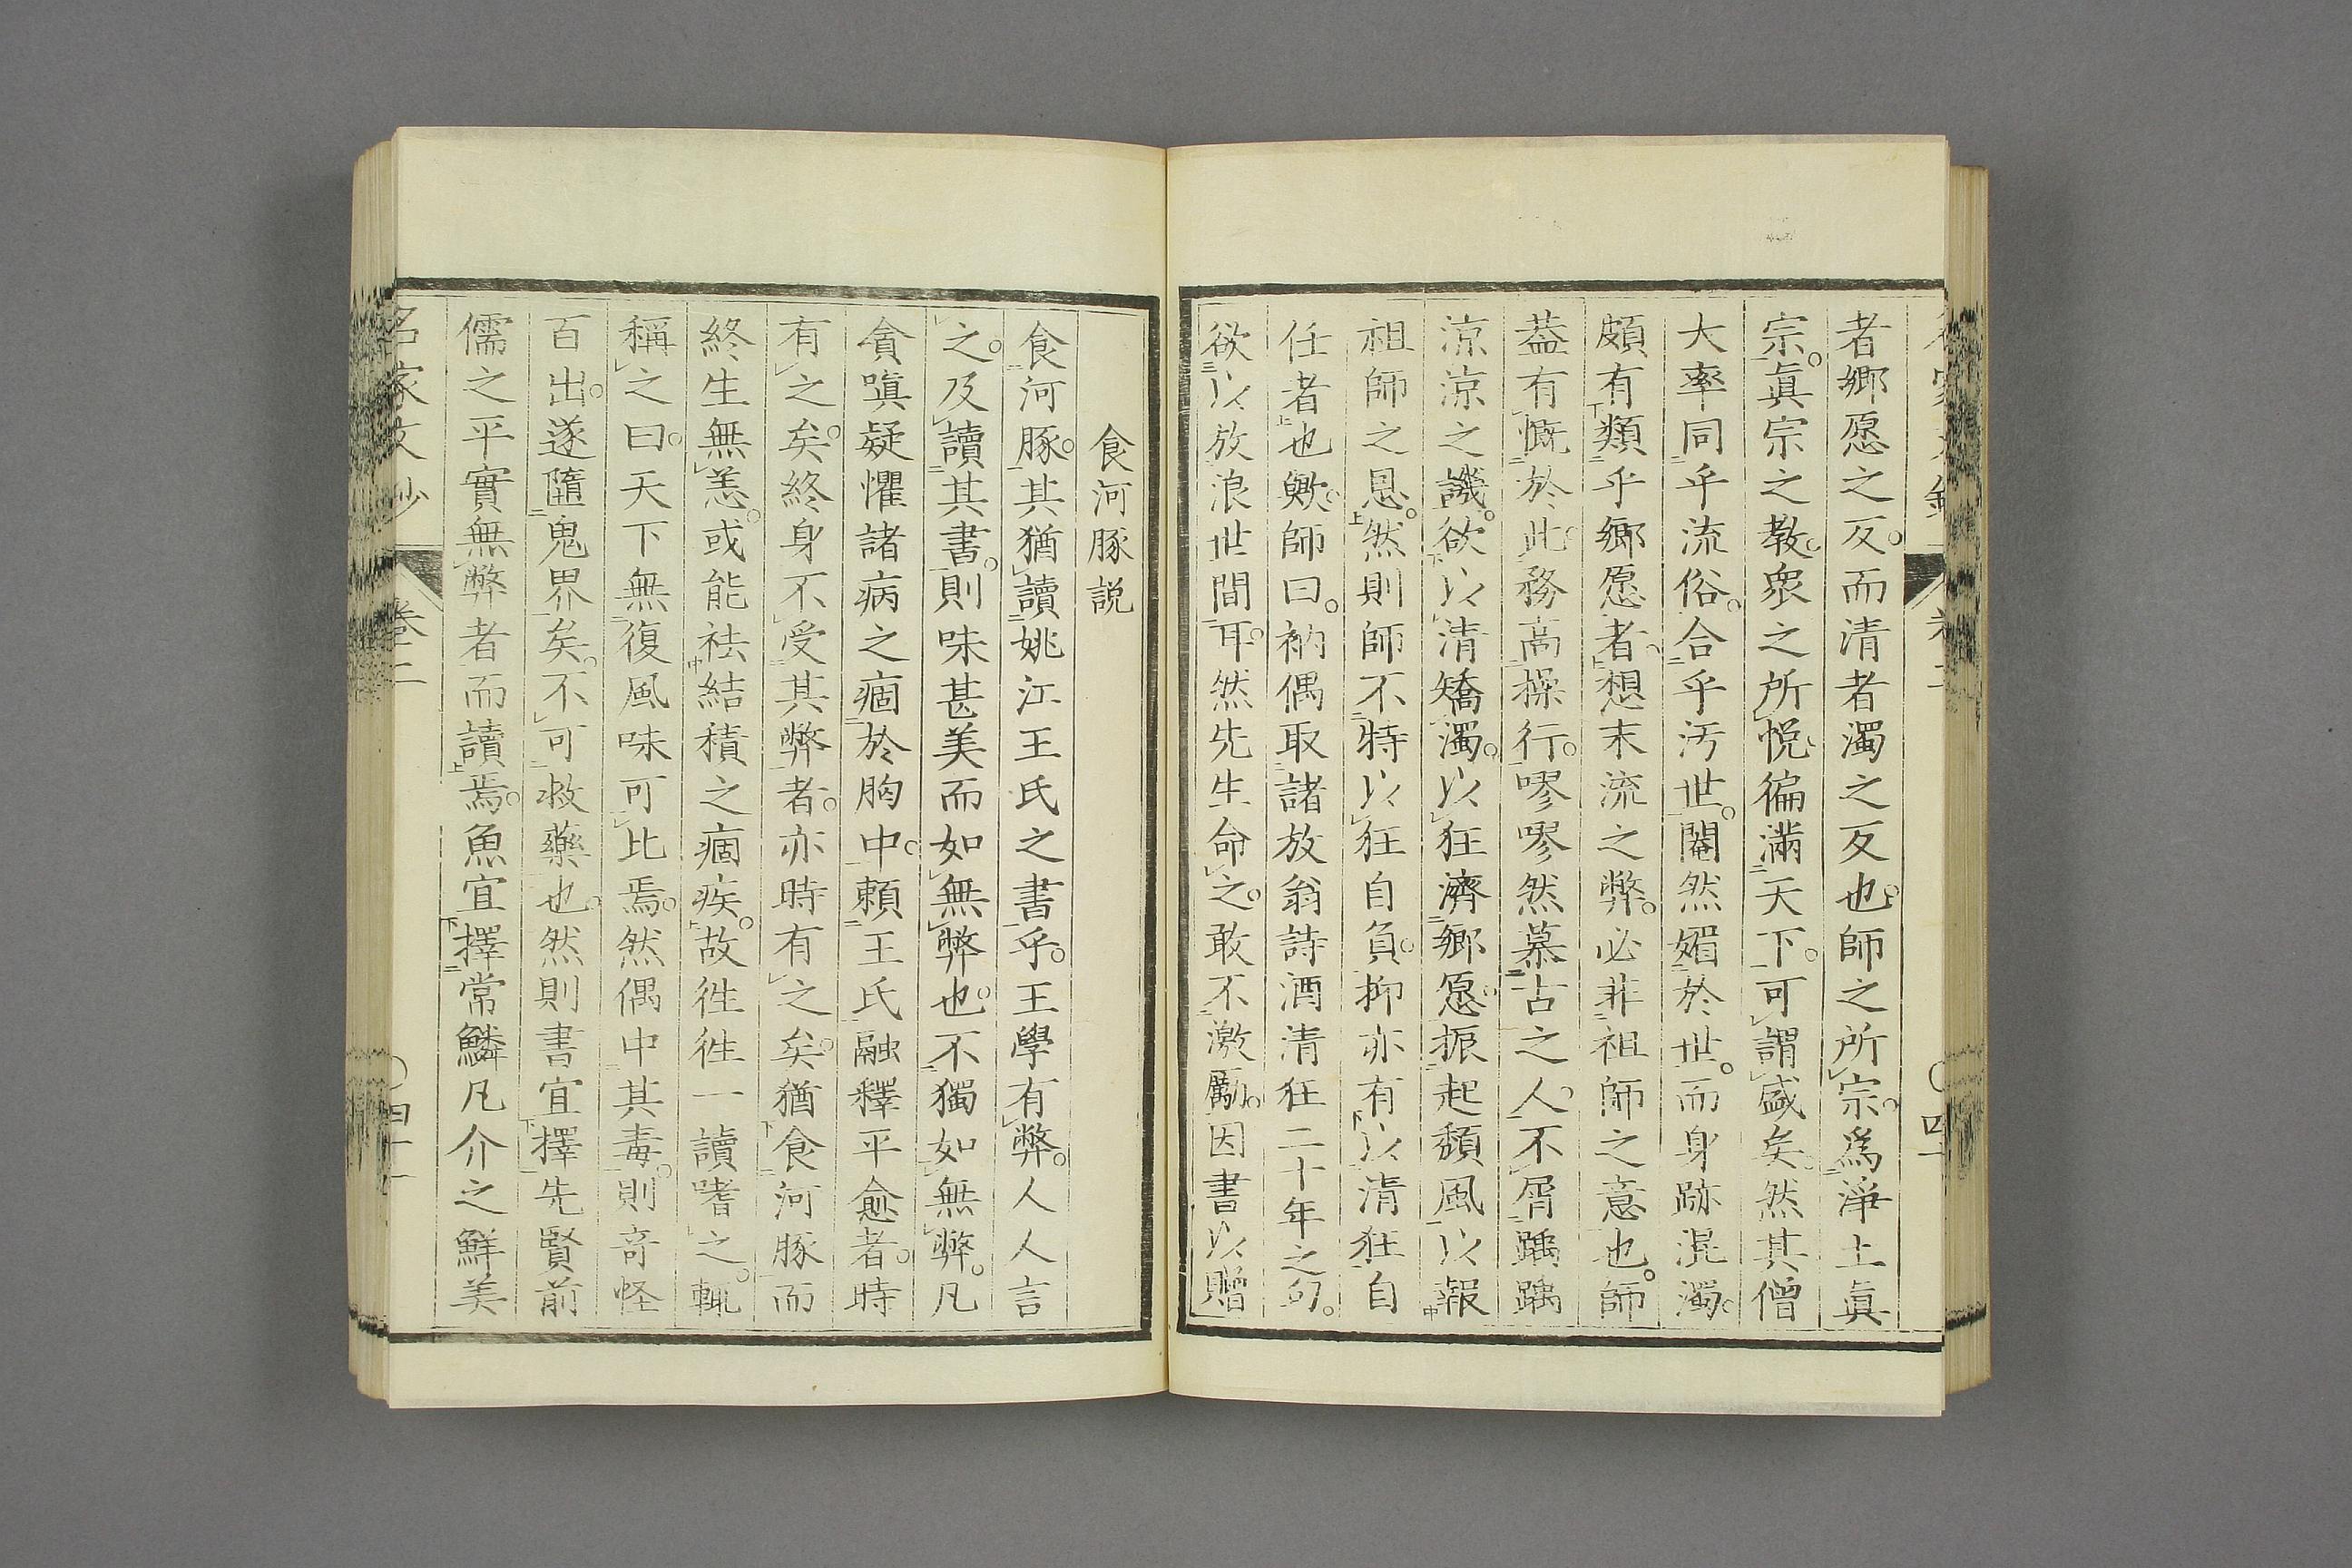 者鄉愿之反。而清者濁之反也。師之所宗。爲淨土眞
宗。眞宗之教。衆之所悅。徧滿天下。可謂盛矣。然其僧
大率同乎流俗。合乎汚世。閹然媚於世。而身跡混濁。
頗有類乎鄉愿者。想末流之弊。必非祖師之意也。師
蓋有慨於此。務高操行。嘐嘐然慕古之人。不屑踽踽
涼涼之譏。欲以清矯濁。以狂濟鄉愿。振起頽風。以報
祖師之恩。然則師不特以狂自負。抑亦有以清狂自
任者也歟。師曰。衲偶取諸放翁詩酒清狂二十年之句。
欲以放浪世間耳。然先生命之。敢不激勵。因書以贈
食河豚説
食河豚。其猶讀姚江王氏之書乎。王學有弊。人人言
之。及讀其書。則味甚美而如無弊也。不獨如無弊。凡
貪嗔疑懼諸病之痼於胸中。賴王氏融釋平愈者。時
有之矣。終身不受其弊者。亦時有之矣。猶食河豚而
終生無恙。或能祛結積之痼疾。故徃徃一讀嗜之。輒
稱之曰。天下無復風味可比焉。然偶中其毒。則奇怪
百出。遂隨鬼界矣。不可救藥也。然則書宜擇先賢前
儒之平實無弊者而讀焉。魚宜擇常鱗凡介之鮮美
名家文抄
卷二
〇四十一